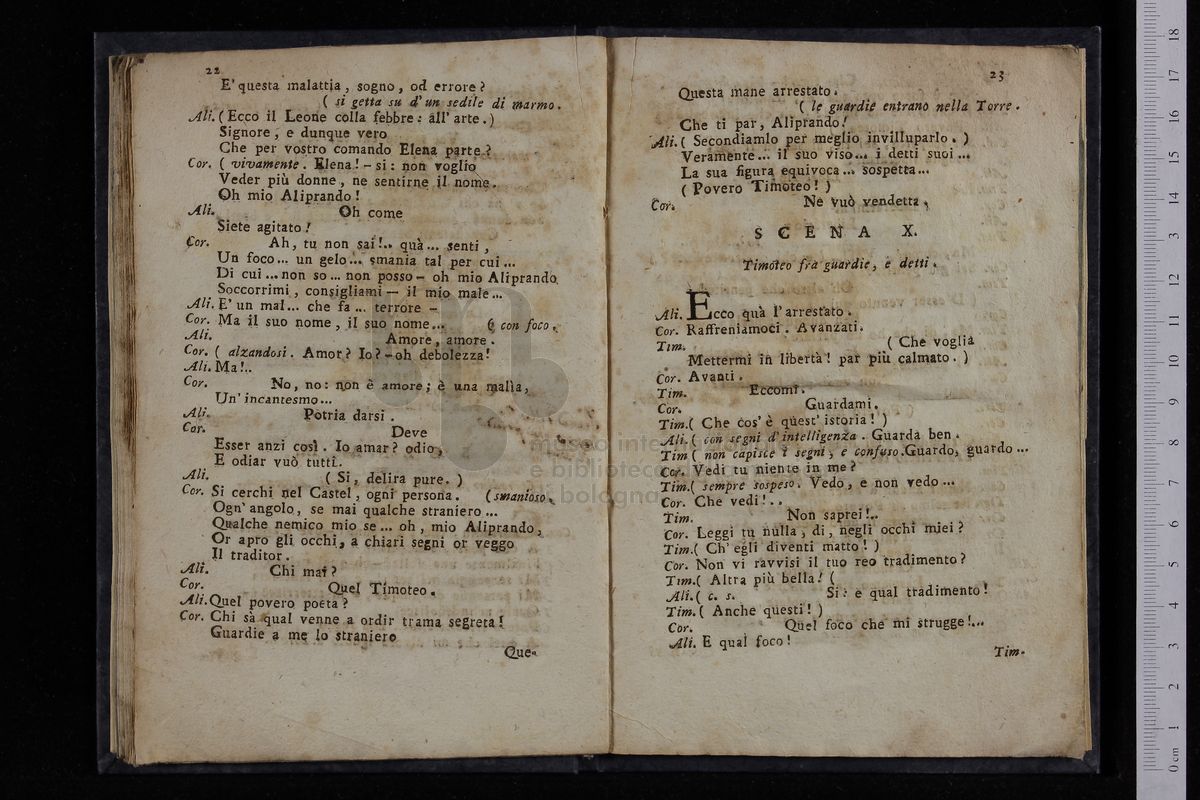 22
E' questa malattia, sogno, od errore?
( si getta su d'un sedile di marmo.
Ali. ( Ecco il Leone colla febbre: all' arte. )
Signore, e dunque vero
Che per vostro comando Elena parte?
Cor. ( vivamente. Elena! - si: non voglio
Veder più donne, ne sentirne il nome.
Oh mio Aliprando!
Ali. Oh come
Siete agitato!
Cor. Ah, tu non sai!.. quà... senti,
Un foco... un gelo... smania tal per cui...
Di cui... non so... non posso - oh mio Aliprando,
Soccorrimi, consigliami — il mio male...
Ali. E' un mal... che fa... terrore -
Cor. Ma il suo nome, il suo nome... ( con foco.
Ali. Amore, amore.
Cor. ( alzandosi. Amor? Io? - oh debolezza!
Ali. Ma!..
Cor. No, no: non è amore; è una malìa,
Un' incantesmo...
Ali. Potria darsi.
Cor. Deve
Esser anzi così. Io amar? odio,
E odiar vuò tutti.
Ali. ( Si, delira pure. )
Cor. Si cerchi nel Castel, ogni persona. ( smanioso.
Ogn' angolo, se mai qualche straniero...
Qualche nemico mio se... oh, mio Aliprando,
Or apro gli occhi, a chiari segni or veggo
Il traditor.
Ali. Chi mai?
Cor. Quel Timoteo.
Ali. Quel povero poeta?
Cor. Chi sà qual venne a ordir trama segreta!
Guardie a me lo straniero
Que-
23
Questa mane arrestato.
( le guardie entrano nella Torre.
Che ti par, Aliprando!
Ali. ( Secondiamlo per meglio invilluparlo. )
Veramente... il suo viso... i detti suoi...
La sua figura equivoca... sospetta...
( Povero Timoteo! )
Cor. Ne vuò vendetta.
SCENA X.
Timoteo fra guardie, e detti.
Ali. Ecco quà l'arrestato.
Cor. Raffreniamoci. Avanzati.
Tim. ( Che voglia
Mettermi in libertà! par più calmato. )
Cor. Avanti.
Tim. Eccomi.
Cor. Guardami.
Tim. ( Che cos' è quest' istoria! )
Ali. ( con segni d'intelligenza. Guarda ben.
Tim ( non capisce i segni, e confuso. Guardo, guardo...
Cor. Vedi tu niente in me?
Tim. ( sempre sospeso. Vedo, e non vedo...
Cor. Che vedi!..
Tim. Non saprei!..
Cor. Leggi tu nulla, di, negli occhi miei?
Tim. ( Ch' egli diventi matto! )
Cor. Non vi ravvisi il tuo reo tradimento?
Tim. ( Altra più bella! (
Ali. ( c. s. Si: e qual tradimento!
Tim. ( Anche questi! )
Cor. Quel foco che mi strugge!...
Ali. E qual foco!
Tim-